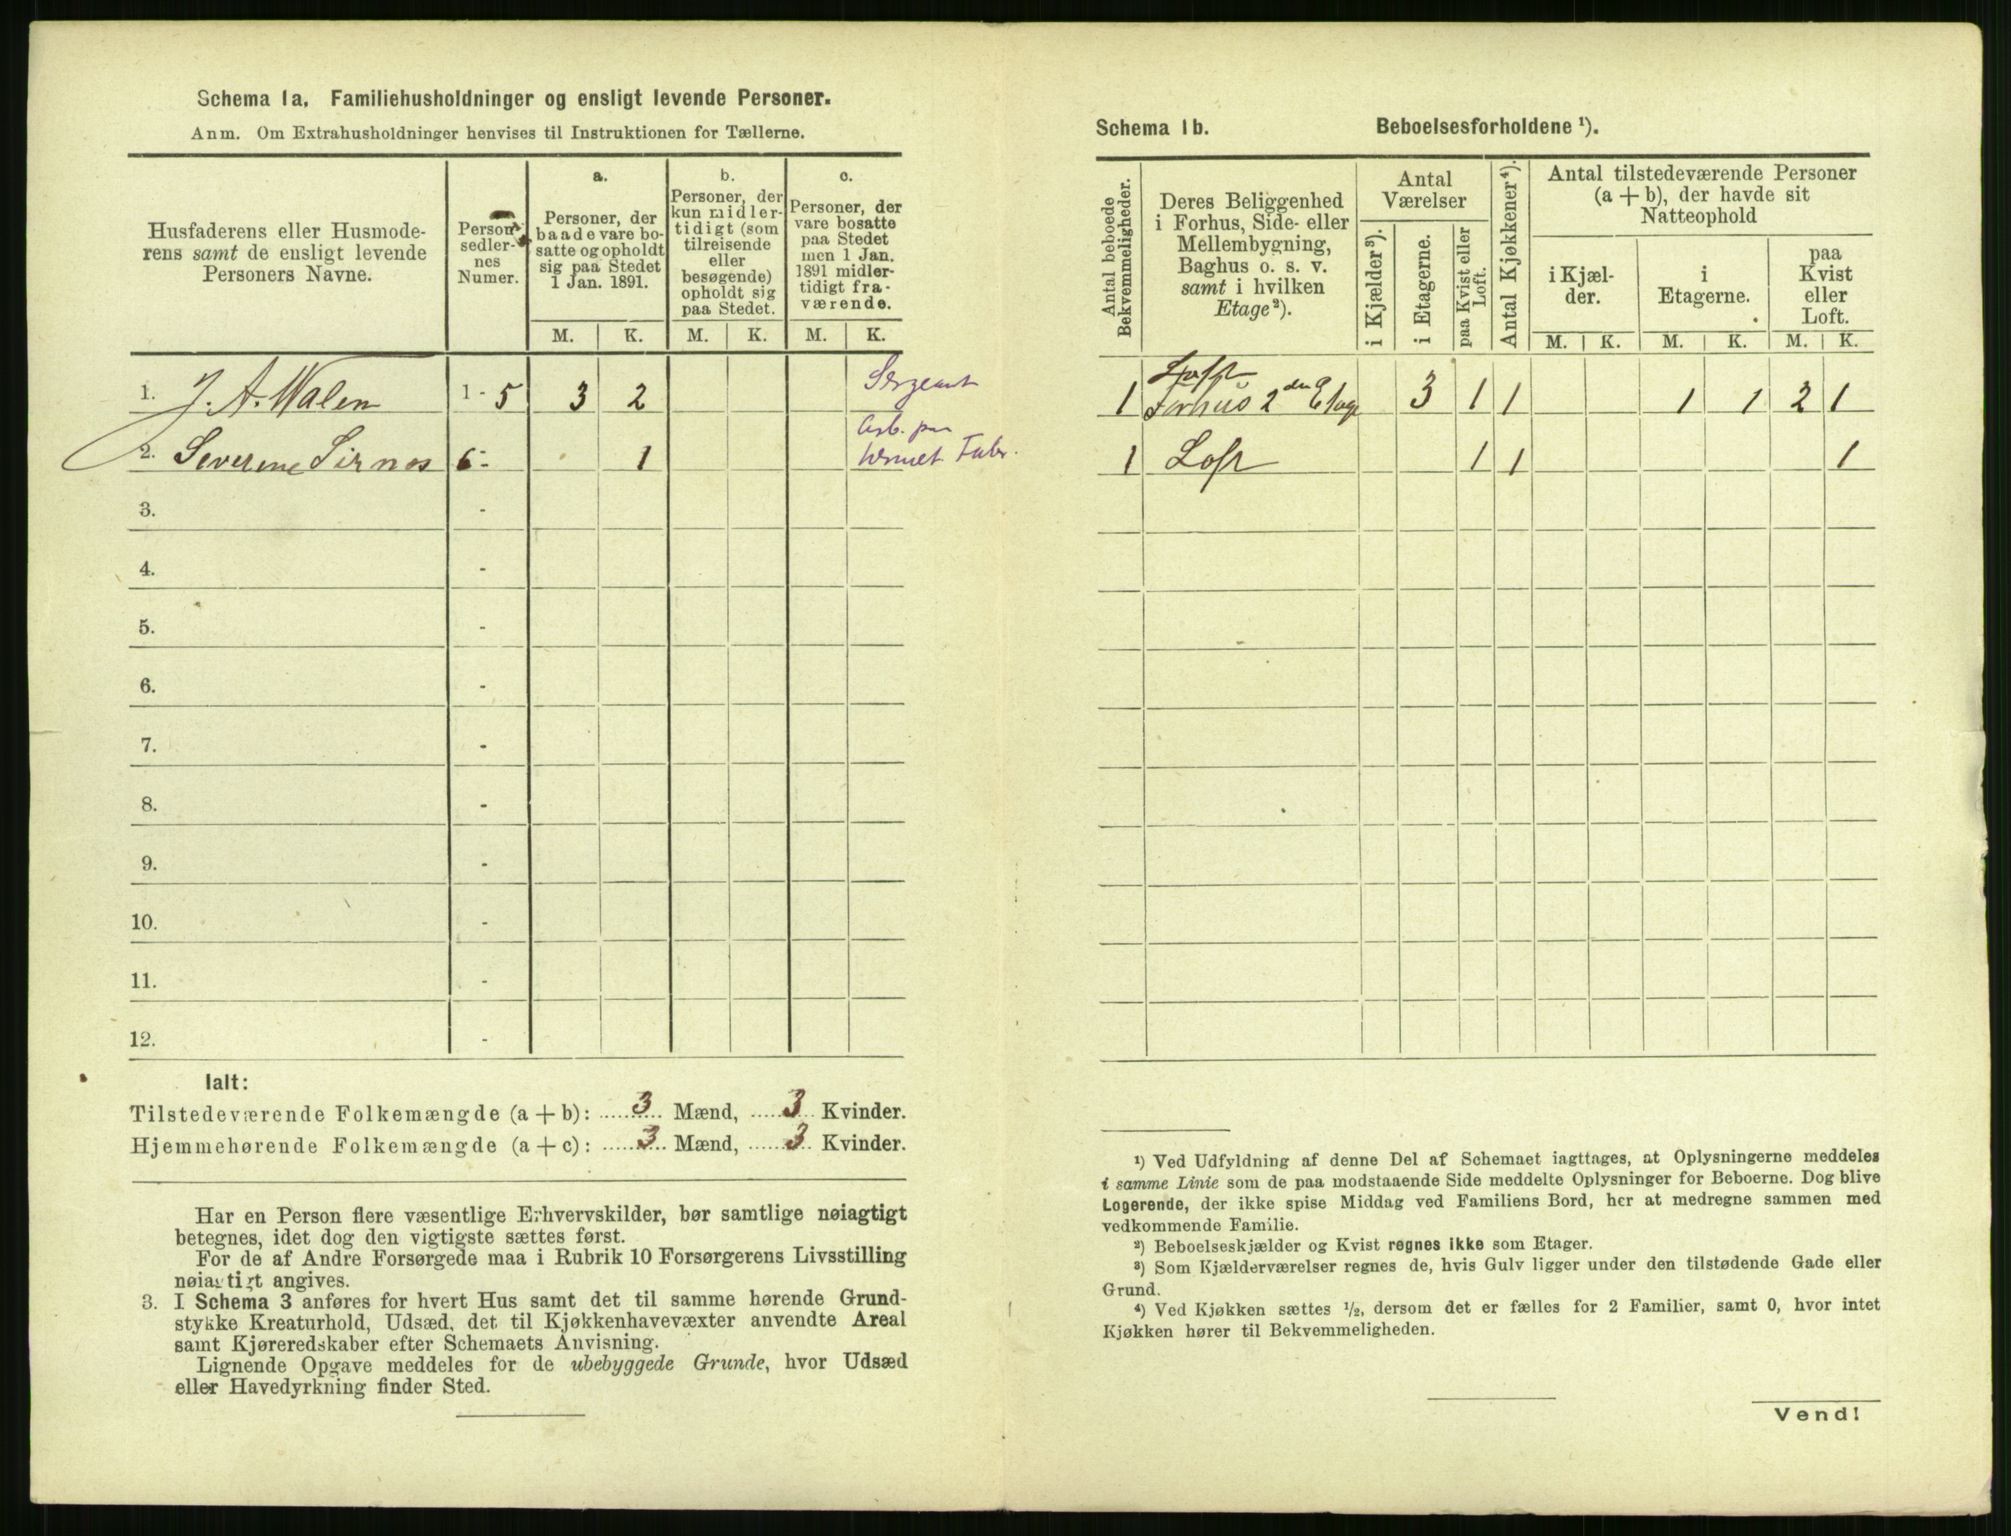 Schema 1a. Familiehusholdninger og ensligt levende Personer.
Anm. Om Extrahusholdninger henvises til Instruktionen for Tællerne.
Husfaderens eller Husmode-
rens samt de ensligt levende
Personers Navne.
Person-
sedler-
nes
Numer.
a.
Personer, der
baade vare bo-
satte og opholdt
sig paa Stedet
1 Jan. 1891.
b.
Personer, der
kun midler-
tidigt (som
tilreisende
eller
besøgende)
opholdt sig
paa Stedet.
c.
Personer, der
vare bosatte
paa Stedet
men 1 Jan.
1891 midler-
tidigt fra-
værende.
M. K. M. K. M. K.
1. J. A. Walen 1 - 5 3 2 Sergeant
2. Severine Sirnes 6 - 1 Arb. paa
hermet. Fabr.
3. -
4. -
5. -
6. -
7. -
8. -
9. -
10. -
11. -
12. -
Ialt:
Tilstedeværende Folkemængde (a + b): 3 Mænd, 3 Kvinder.
Hjemmehørende Folkemængde (a + c): 3 Mænd, 3 Kvinder.
Har en Person flere væsentlige Erhvervskilder, bør samtlige nøiagtigt
betegnes, idet dog den vigtigste sættes først.
For de af Andre Forsørgede maa i Rubrik 10 Forsørgerens Livsstilling
nøiagtigt angives.
3. I Schema 3 anføres for hvert Hus samt det til samme hørende Grund-
stykke Kreaturhold, Udsæd, det til Kjøkkenhavevæxter anvendte Areal
samt Kjøreredskaber efter Schemaets Anvisning.
Lignende Opgave meddeles for de ubebyggede Grunde, hvor Udsæd
eller Havedyrkning finder Sted.
Schema 1b. Beboelsesforholdene ¹).
Antal beboede
Bekvemmeligheder.
Deres Beliggenhed
i Forhus, Side- eller
Mellembygning,
Baghus o. s. v.
samt i hvilken
Etage ²).
Antal
Værelser
i Kjælder ³).
i Etagerne.
paa Kvist eller
Loft.
Antal Kjøkkener ⁴).
Antal tilstedeværende Personer
(a + b), der havde sit
Natteophold
i Kjæl-
der.
i
Etagerne.
paa
Kvist
eller
Loft.
M. K. M. K. M. K.
Loft
1 Forhus 2den Etage 3 1 1 1 1 2 1
1 Loft 1 1 1
¹) Ved Udfyldning af denne Del af Schemaet iagttages, at Oplysningerne meddeles
i samme Linie som de paa modstaaende Side meddelte Oplysninger for Beboerne. Dog blive
Logerende, der ikke spise Middag ved Familiens Bord, her at medregne sammen med
vedkommende Familie.
²) Beboelseskjælder og Kvist regnes ikke som Etager.
³) Som Kjælderværelser regnes de, hvis Gulv ligger under den tilstødende Gade eller
Grund.
⁴) Ved Kjøkken sættes ½, dersom det er fælles for 2 Familier, samt 0, hvor intet
Kjøkken hører til Bekvemmeligheden.
Vend!